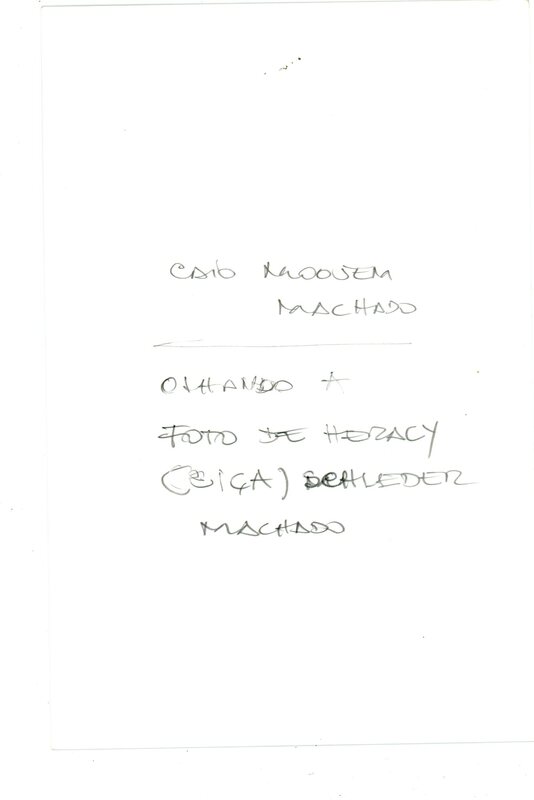 CAIO MOOJEM
MACHADO
OLHANDO A
FOTO DE HORACY
(CEIÇA) SCHLEDER
MACHADO